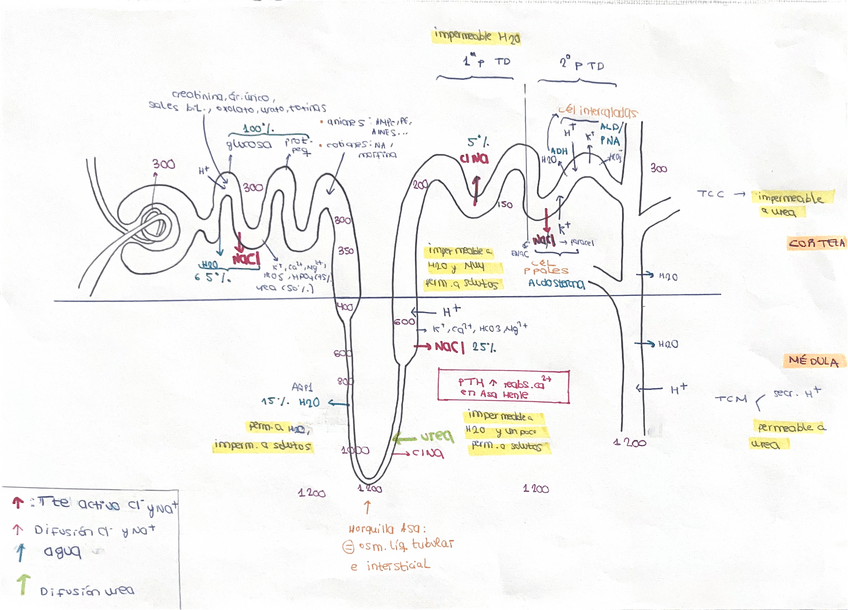 impermeable H2O
1ª p TD
2ª p TD
creatinina, ác. úrico,
sales bil., oxalato, urato, toxinas
100%
glucosa
prot. peq
H+
• aniones: AMPc, PE,
AINES...
• cationes: NA,
morfina
300
300
300
350
H2O
65%
NaCl
K+, Ca2+, Mg2+,
urea (50%)
5%
ClNa
200
150
Cél intercaladas
ALD/
PNA
H+
K+
HCO3-
ADH
H2O
300
TCC → impermeable
a urea
CORTEZA
impermeable a
H2O y Muy
perm. a solutos
ENAC
NaCl
K+
→ paracel
CÉL
PPALES
Aldosterona
H2O
400
600
H+
K+, Ca2+, HCO3, Mg2+
NaCl 25%
600
800
H2O
MÉDULA
PTH ↑ reabs. Ca2+
en Asa Henle
AQP1
15% H2O
perm. a H2O,
imperm. a solutos
H+
TCM
secr. H+
permeable a
urea
impermeable a
H2O y un poco
perm. a solutos
urea
ClNa
1000
1200
1200
1200
1200
Horquilla Asa:
= osm. líq tubular
e intersticial
↑ : Tte activo Cl- y Na+
↑ Difusión Cl- y Na+
↑ agua
↑ Difusión urea